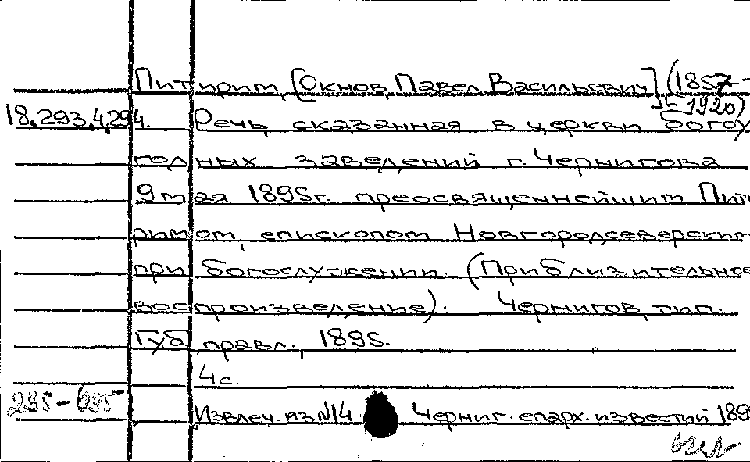 Питирим, [Окнов, Павел Васильевич] (1857-
-1920)
18.293.4.294. Речь, сказанная в церкви богоу
годных заведений г. Чернигова
9 мая 1895г. преосвященнейшим Пити
римом, епископом Новгородсеверским
при богослужении. (Приблизительное
воспроизведение). Чернигов, тип.
Губ. правл., 1895.
4с.
295-695
Извлеч. из №14 Черниг. епарх. известий 189